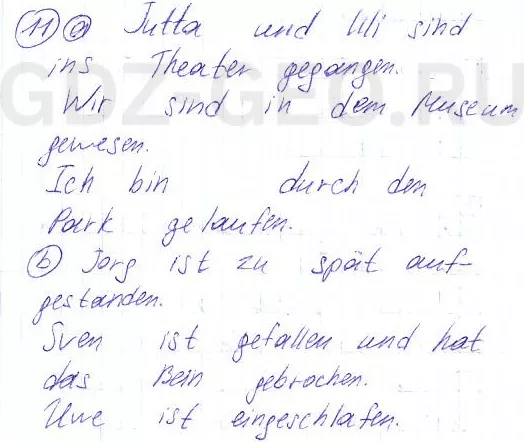 11) a) Jutta und Uli sind
ins Theater gegangen.
Wir sind in dem Museum
gewesen.
Ich bin durch den
Park gelaufen.
b) Jorg ist zu spät auf-
gestanden.
Sven ist gefallen und hat
das Bein gebrochen.
Uwe ist eingeschlafen.
GDZ-GEO.RU